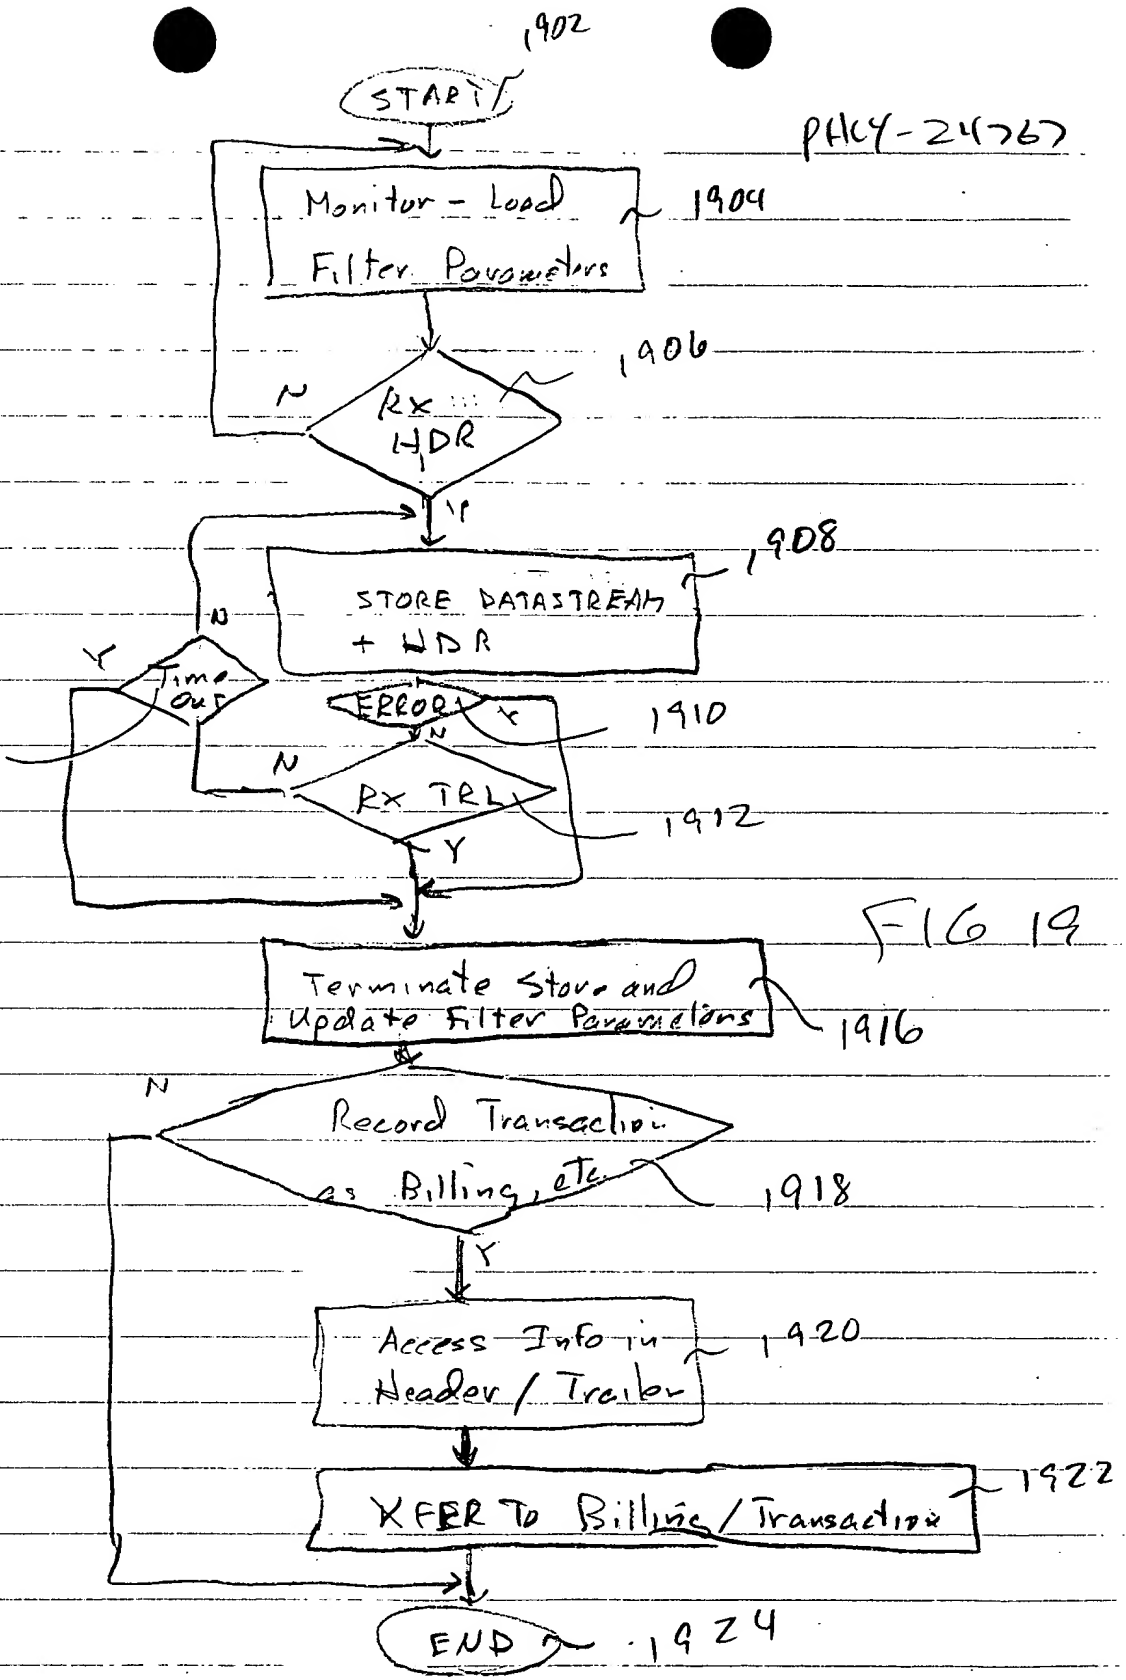 1902
START
PHLY-24767
Monitor - Load
1904
Filter Parameters
1906
N
RX
HDR
Y
1908
STORE DATASTREAM
+ HDR
N
Y
Time
Out
ERROR
Y
1910
N
N
RX TRL
1912
Y
FIG 19
Terminate Store and
Update Filter Parameters
1916
N
Record Transaction
as Billing, etc.
1918
Y
Access Info in
1920
Header / Trailer
1922
XFER To Billing / Transaction
END
1924